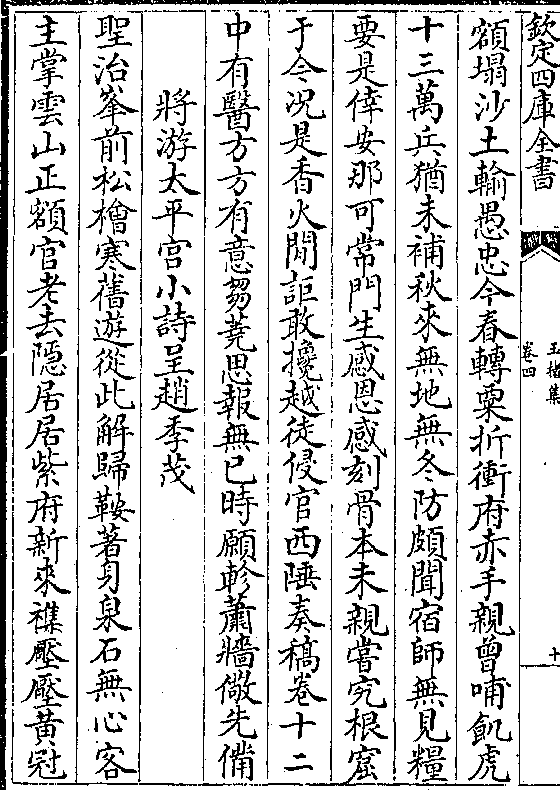 欽定四庫全書
玉楮集
卷四
十
額塌沙土輸愚忠今春轉粟折衝府赤手親曽哺飢虎
十三萬兵猶未補秋來無地無冬防頗聞宿師無見糧
要是倖安那可常門生感恩感刻骨本末親嘗究根窟
于今况是香火閒詎敢攙越徒侵官西陲奏稿卷十二
中有醫方方有意芻蕘思報無已時願軫蕭牆儆先備
將游太平宫小詩呈趙季茂
聖治峯前松檜寒舊遊從此解歸鞍著身泉石無心客
主掌雲山正額官老去隠居居紫府新來襍壓壓黄冠